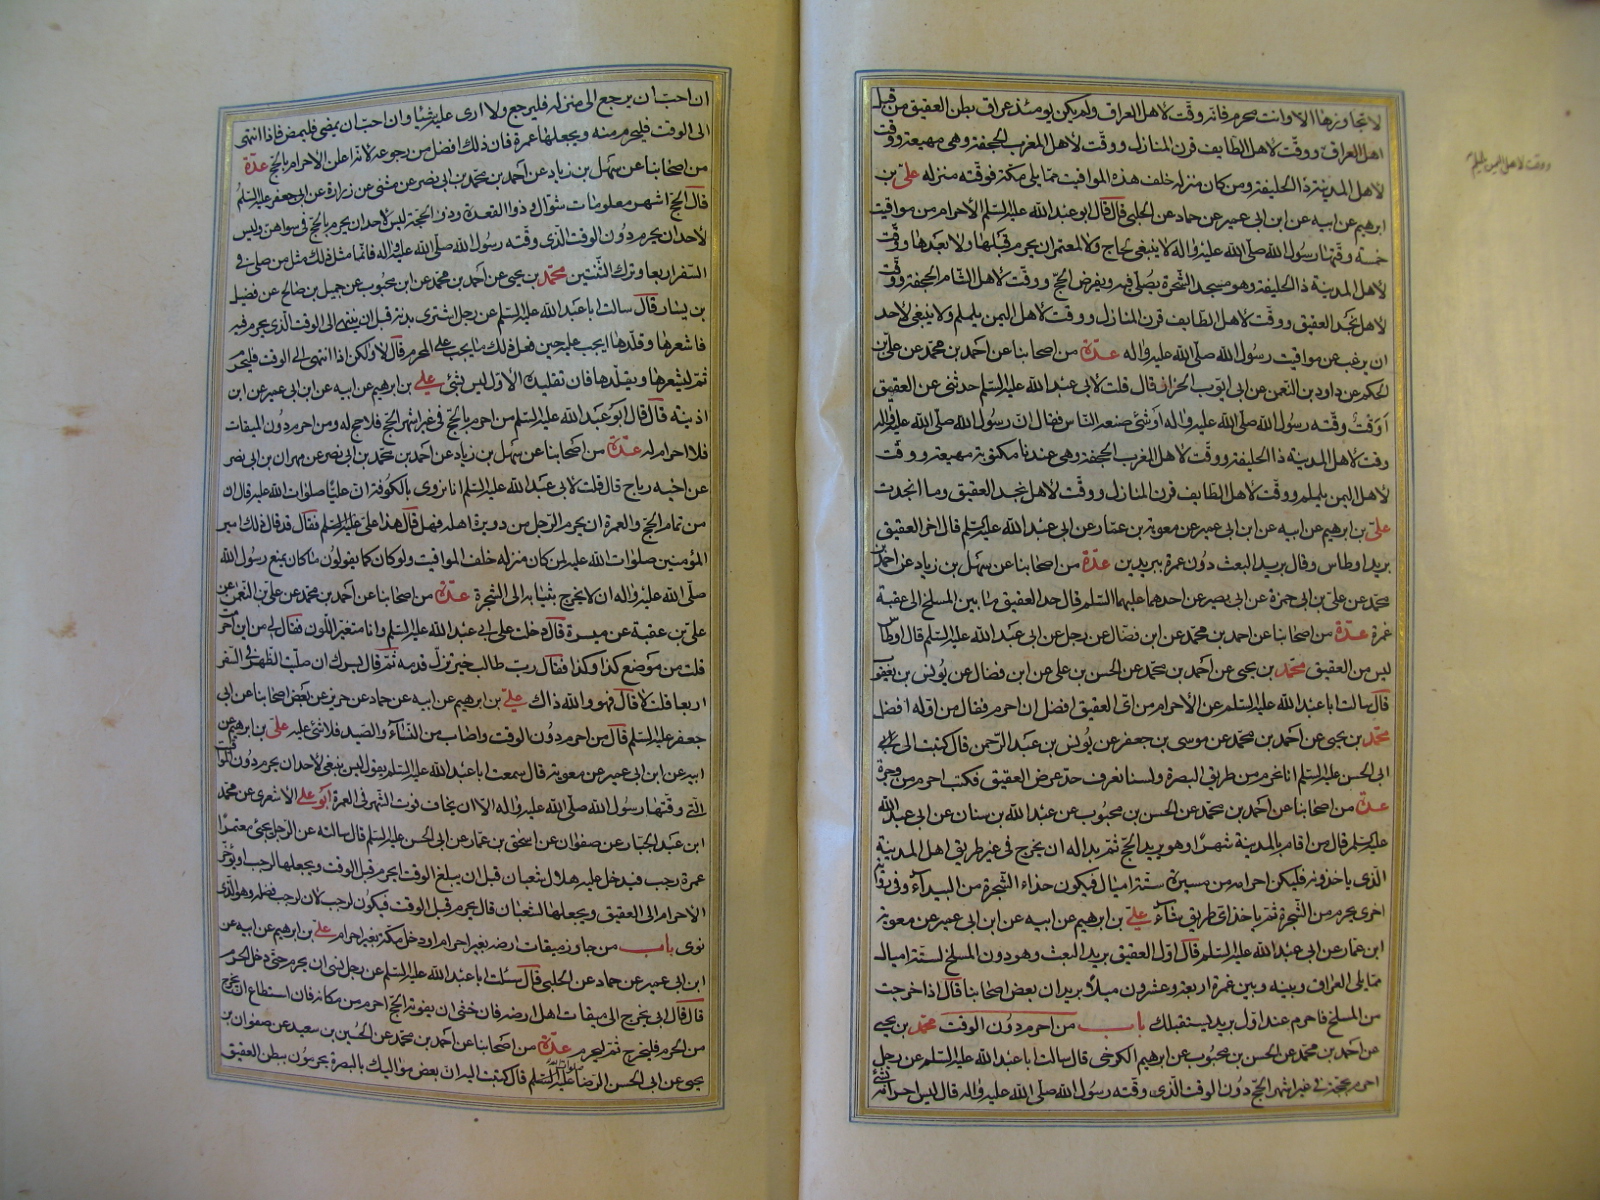 لا تجاوزها الا وانت محرم فانه وقت لاهل العراق ولم يكن يومئذ عراق بطن العقيق من قبل
اهل العراق ووقت لاهل الطايف قرن المنازل ووقت لاهل المغرب الجحفة وهى مهيعة ووقت
لاهل المدينة ذا الحليفة ومن كان منزله خلف هذه المواقيت مما يلى مكة فوقته منزله على بن
ابرهيم عن ابيه عن ابن ابى عمير عن حماد عن الحلبى قال قال ابو عبد الله عليه السلم الاحرام من مواقيت
خمسة وقتها رسول الله صلى الله عليه واله لا ينبغى لحاج ولا لمعتمر ان يحرم قبلها ولا بعدها ووقت
لاهل المدينة ذا الحليفة وهو مسجد الشجرة يصلى فيه ويفرض الحج ووقت لاهل الشام الجحفة ووقت
لاهل نجد العقيق ووقت لاهل الطايف قرن المنازل ووقت لاهل اليمن يلملم ولا ينبغى لاحد
ان يرغب عن مواقيت رسول الله صلى الله عليه واله عدة من اصحابنا عن احمد بن محمد عن على بن
الحكم عن داود بن النعمن عن ابى ايوب الخزاز قال قلت لابى عبد الله عليه السلم حدثنى عن العقيق
اوقت وقته رسول الله صلى الله عليه واله او شئ صنعه الناس فقال ان رسول الله صلى الله عليه واله
وقت لاهل المدينة ذا الحليفة ووقت لاهل المغرب الجحفة وهى عندنا مكتوبة مهيعة ووقت
لاهل اليمن يلملم ووقت لاهل الطايف قرن المنازل ووقت لاهل نجد العقيق وما انجدت
على بن ابرهيم عن ابيه عن ابن ابى عمير عن معوية بن عمار عن ابى عبد الله عليه السلم قال اخر العقيق
بريد اوطاس وقال بريد البعث دون غمرة ببريدين عدة من اصحابنا عن سهل بن زياد عن احمد بن
محمد عن على بن ابى حمزة عن ابى بصير عن احدهما عليهما السلم قال حد العقيق ما بين المسلخ الى عقبة
غمرة عدة من اصحابنا عن احمد بن محمد عن ابن فضال عن رجل عن ابى عبد الله عليه السلم قال اوطاس
ليس من العقيق محمد بن يحيى عن احمد بن محمد عن الحسن بن على عن ابن فضال عن يونس بن يعقوب
قال سالت ابا عبد الله عليه السلم عن الاحرام من اى العقيق افضل ان احرم فقال من اوله افضل
محمد بن يحيى عن احمد بن محمد عن موسى بن جعفر عن يونس بن عبد الرحمن قال كتبت الى
ابى الحسن عليه السلم انا نحرم من طريق البصرة ولسنا نعرف حد عرض العقيق فكتب احرم من وجرة
عدة من اصحابنا عن احمد بن محمد عن الحسن بن محبوب عن عبد الله بن سنان عن ابى عبد الله
عليه السلم قال من اقام بالمدينة شهرا وهو يريد الحج ثم بدا له ان يخرج فى غير طريق اهل المدينة
الذى ياخذونه فليكن احرامه من مسيرة ستة اميال فيكون حذاء الشجرة من البيداء وفى رواية
اخرى يحرم من الشجرة ثم ياخذ اى طريق شاء على بن ابرهيم عن ابيه عن ابن ابى عمير عن معوية
ابن عمار عن ابى عبد الله عليه السلم قال اول العقيق بريد البعث وهو دون المسلخ لستة اميال
مما يلى العراق وبينه وبين غمرة اربعة وعشرون ميلا بريدان بعض اصحابنا قال اذا خرجت
من المسلخ فاحرم عند اول بريد يستقبلك باب من احرم دون الوقت محمد بن يحيى
عن احمد بن محمد عن الحسن بن محبوب عن ابرهيم الكرخى قال سالت ابا عبد الله عليه السلم عن رجل
احرم بحجة فى غير اشهر الحج دون الوقت الذى وقته رسول الله صلى الله عليه واله قال ليس احرامه بشئ
ووقت لاهل اليمن يلملم
ان احب ان يرجع الى منزله فليرجع ولا ارى عليه شيئا وان احب ان يمضى فليمض فاذا انتهى
الى الوقت فليحرم منه ويجعلها عمرة فان ذلك افضل من رجوعه لانه اعلن الاحرام بالحج عدة
من اصحابنا عن سهل بن زياد عن احمد بن محمد بن ابى نصر عن مثنى عن زرارة عن ابى جعفر عليه السلم
قال الحج اشهر معلومات شوال وذو القعدة وذو الحجة ليس لاحد ان يحرم بالحج فى سواهن وليس
لاحد ان يحرم دون الوقت الذى وقته رسول الله صلى الله عليه واله فانما مثل ذلك مثل من صلى فى
السفر اربعا وترك الثنتين محمد بن يحيى عن احمد بن محمد عن ابن محبوب عن جميل بن صالح عن فضيل
بن يسار قال سالت ابا عبد الله عليه السلم عن رجل اشترى بدنة قبل ان ينتهى الى الوقت الذى يحرم فيه
فاشعرها وقلدها ايجب عليه حين فعل ذلك ما يجب على المحرم قال لا ولكن اذا انتهى الى الوقت فليحرم
ثم ليشعرها ويقلدها فان تقليده الاول ليس بشئ على بن ابرهيم عن ابيه عن ابن ابى عمير عن ابن
اذينة قال قال ابو عبد الله عليه السلم من احرم بالحج فى غير اشهر الحج فلا حج له ومن احرم دون الميقات
فلا احرام له عدة من اصحابنا عن سهل بن زياد عن احمد بن محمد بن ابى نصر عن مهران بن ابى نصر
عن اخيه رباح قال قلت لابى عبد الله عليه السلم انا نروى بالكوفة ان عليا صلوات الله عليه قال ان
من تمام الحج والعمرة ان يحرم الرجل من دويرة اهله فهل قال هذا على عليه السلم فقال قد قال ذلك امير
المؤمنين صلوات الله عليه لمن كان منزله خلف المواقيت ولو كان كما يقولون ما كان يمنع رسول الله
صلى الله عليه واله ان لا يخرج بثيابه الى الشجرة عدة من اصحابنا عن احمد بن محمد عن على بن النعمن عن
على بن عقبة عن ميسرة قال دخلت على ابى عبد الله عليه السلم وانا متغير اللون فقال لى من اين احرمت
قلت من موضع كذا وكذا فقال رب طالب خير تزل قدمه ثم قال يسرك ان صليت الظهر فى السفر
اربعا قلت لا قال فهو والله ذاك على بن ابرهيم عن ابيه عن حماد عن حريز عن بعض اصحابنا عن ابى
جعفر عليه السلم قال من احرم دون الوقت واصاب من النساء والصيد فلا شئ عليه على بن ابرهيم عن
ابيه عن ابن ابى عمير عن معوية قال سمعت ابا عبد الله عليه السلم يقول ليس ينبغى لاحد ان يحرم دون الوقت
التى وقتها رسول الله صلى الله عليه واله الا ان يخاف فوت الشهر فى العمرة ابو على الاشعرى عن محمد
ابن عبد الجبار عن صفوان عن اسحق بن عمار عن ابى الحسن عليه السلم قال سالته عن الرجل يجئ معتمرا
عمرة رجب فيدخل عليه هلال شعبان قبل ان يبلغ الوقت ايحرم قبل الوقت ويجعلها لرجب او يؤخر
الاحرام الى العقيق ويجعلها لشعبان قال يحرم قبل الوقت فيكون لرجب لان لرجب فضله وهو الذى
نوى باب من جاوز ميقات ارضه بغير احرام او دخل مكة بغير احرام على بن ابرهيم عن ابيه عن
ابن ابى عمير عن حماد عن الحلبى قال سئلت ابا عبد الله عليه السلم عن رجل نسى ان يحرم حتى دخل الحرم
قال قال ابى يخرج الى ميقات اهل ارضه فان خشى ان يفوته الحج احرم من مكانه فان استطاع ان يخرج
من الحرم فليخرج ثم ليحرم عدة من اصحابنا عن احمد بن محمد عن الحسين بن سعيد عن صفوان بن
يحيى عن ابى الحسن الرضا عليه السلم قال كتبت اليه ان بعض مواليك بالبصرة يحرمون ببطن العقيق